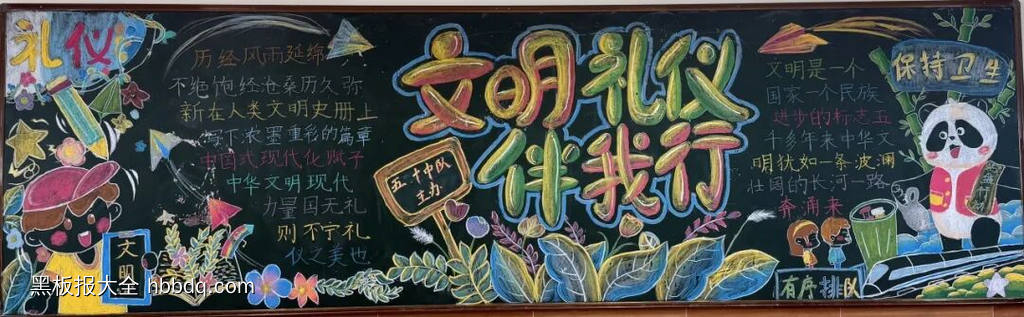 礼仪
历经风雨延绵
不绝饱经沧桑历久弥
新在人类文明史册上
写下浓墨重彩的篇章
中国式现代化赋予
中华文明现代
力量国无礼
则不宁礼
仪之美也
文明
黑板报大全 hbbdq.com
文明礼仪
伴我行
五·十中队
主办
文明是一个
国家一个民族
进步的标志五
千多年来中华文
明犹如一条波澜
壮阔的长河一路
奔涌来
保持卫生
有序排队